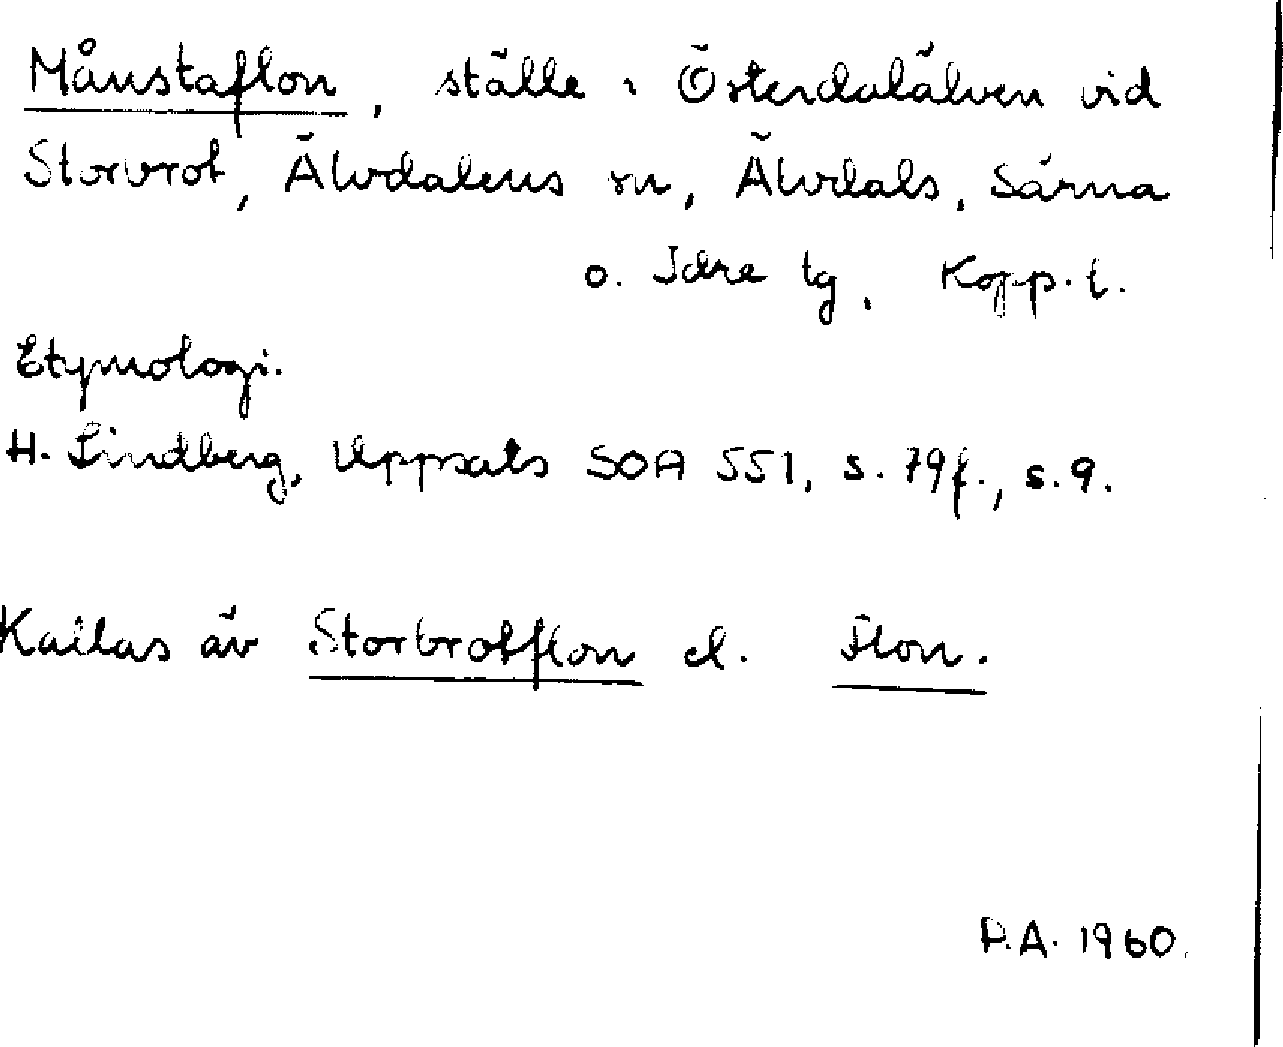 Månstaflon, ställe i Österdalälven vid
Storbrot, Älvdalens sn, Älvdals, Särna
o. Idre tg, Kopp. l.
Etymologi.
H. Lindberg, Uppsats SOA 551, s. 79f., s. 9.
Kallas äv Storbrotflon el. Flon.
P.A. 1960.